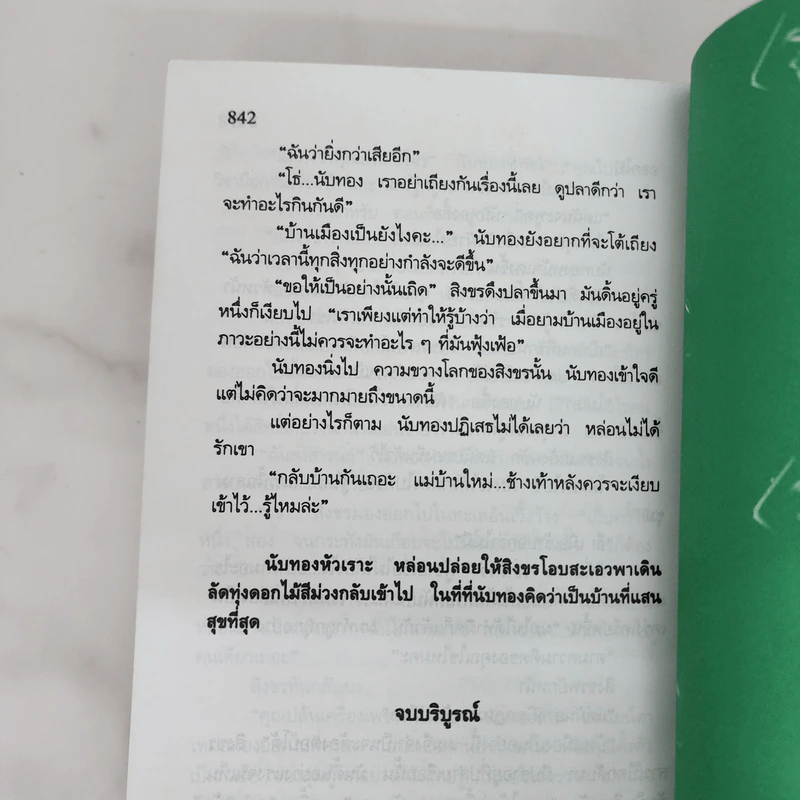 842
“ฉันว่ายิ่งกว่าเสียอีก”
“โธ่...นับทอง เราอย่าเถียงกันเรื่องนี้เลย ดูปลาดีกว่า เรา
จะทำอะไรกินกันดี”
“บ้านเมืองเป็นยังไงคะ...” นับทองยังอยากที่จะโต้เถียง
“ฉันว่าเวลานี้ทุกสิ่งทุกอย่างกำลังจะดีขึ้น”
“ขอให้เป็นอย่างนั้นเถิด” สิงขรดึงปลาขึ้นมา มันดิ้นอยู่ครู่
หนึ่งก็เงียบไป “เราเพียงแต่ทำให้รู้บ้างว่า เมื่อยามบ้านเมืองอยู่ใน
ภาวะอย่างนี้ไม่ควรจะทำอะไร ๆ ที่มันฟุ้งเฟ้อ”
นับทองนิ่งไป ความขวางโลกของสิงขรนั้น นับทองเข้าใจดี
แต่ไม่คิดว่าจะมากมายถึงขนาดนี้
แต่อย่างไรก็ตาม นับทองปฏิเสธไม่ได้เลยว่า หล่อนไม่ได้
รักเขา
“กลับบ้านกันเถอะ แม่บ้านใหม่...ช้างเท้าหลังควรจะเงียบ
เข้าไว้...รู้ไหมล่ะ”
นับทองหัวเราะ หล่อนปล่อยให้สิงขรโอบสะเอวพาเดิน
ลัดทุ่งดอกไม้สีม่วงกลับเข้าไป ในที่ที่นับทองคิดว่าเป็นบ้านที่แสน
สุขที่สุด
จบบริบูรณ์